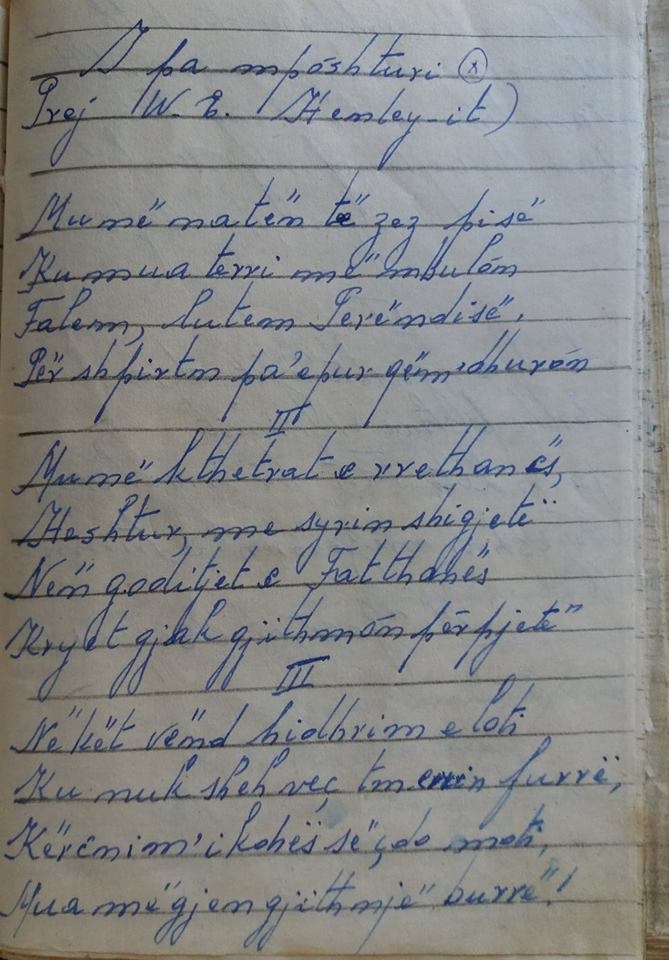 I pa mposhturi (x)
Prej W. E. Henley-it)
Mu në natën të zez pisë
Ku mua terri më mbulón
Falem, lutem Perëndisë.
Për shpirtin pa'epur që m'dhurón
II
Mu në kthetrat e rrethanës,
Heshtur, me syrin shigjetë
Nën goditjet e Fatthanës
Kryet gjak gjithmón përpjetë
III
Në kët vënd hidhrim e loti
Ku nuk sheh veç tmerrin furrë,
Kërcnim' i kohës së çdo moti,
Mua më gjen gjithnjë burrë!